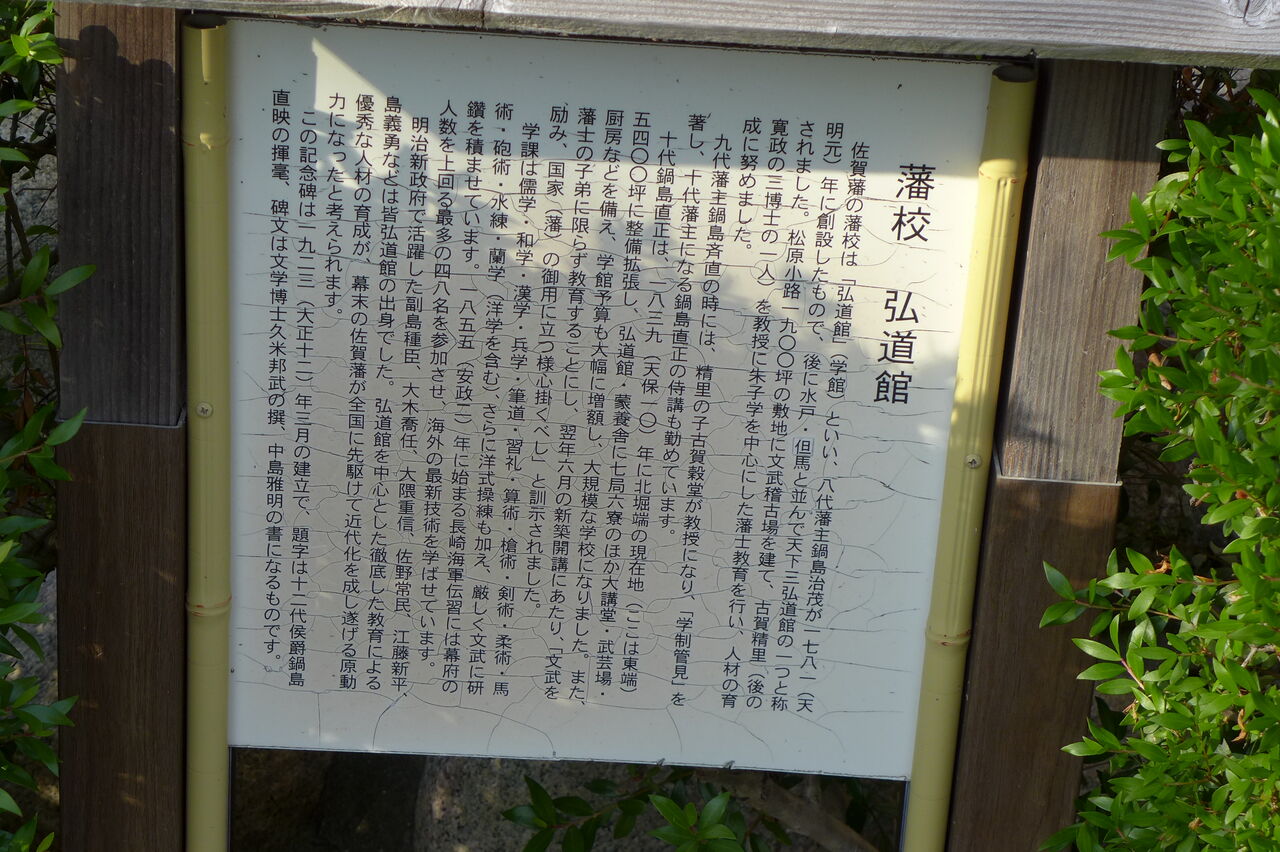 藩校　弘道館
佐賀藩の藩校は「弘道館」（学館）といい、八代藩主鍋島治茂が一七八一（天
明元）年に創設したもので、後に水戸・但馬と並んで天下三弘道館の一つと称
されました。松原小路一九〇〇坪の敷地に文武稽古場を建て、古賀精里（後の
寛政の三博士の一人）を教授に朱子学を中心にした藩士教育を行い、人材の育
成に努めました。
九代藩主鍋島斉直の時には、精里の子古賀穀堂が教授になり、「学制管見」を
著し、十代藩主になる鍋島直正の侍講も勤めています。
十代鍋島直正は、一八三九（天保一〇）年に北堀端の現在地（ここは東端）
五四〇〇坪に整備拡張し、弘道館・蒙養舎に七局六寮のほか大講堂・武芸場・
厨房などを備え、学館予算も大幅に増額し、大規模な学校になりました。また、
藩士の子弟に限らず教育することにし、翌年六月の新築開講にあたり、「文武を
励み、国家（藩）の御用に立つ様心掛くべし」と訓示されました。
学課は儒学・和学・漢学・兵学・筆道・習礼・算術・槍術・剣術・柔術・馬
術・砲術・水練・蘭学（洋学を含む）、さらに洋式操練も加え、厳しく文武に研
鑽を積ませています。一八五五（安政二）年に始まる長崎海軍伝習には幕府の
人数を上回る最多の四八名を参加させ、海外の最新技術を学ばせています。
明治新政府で活躍した副島種臣、大木喬任、大隈重信、佐野常民、江藤新平
島義勇などは皆弘道館の出身でした。弘道館を中心とした徹底した教育による
優秀な人材の育成が、幕末の佐賀藩が全国に先駆けて近代化を成し遂げる原動
力になったと考えられます。
この記念碑は一九二三（大正十二）年三月の建立で、題字は十二代侯爵鍋島
直映の揮毫、碑文は文学博士久米邦武の撰、中島雅明の書になるものです。